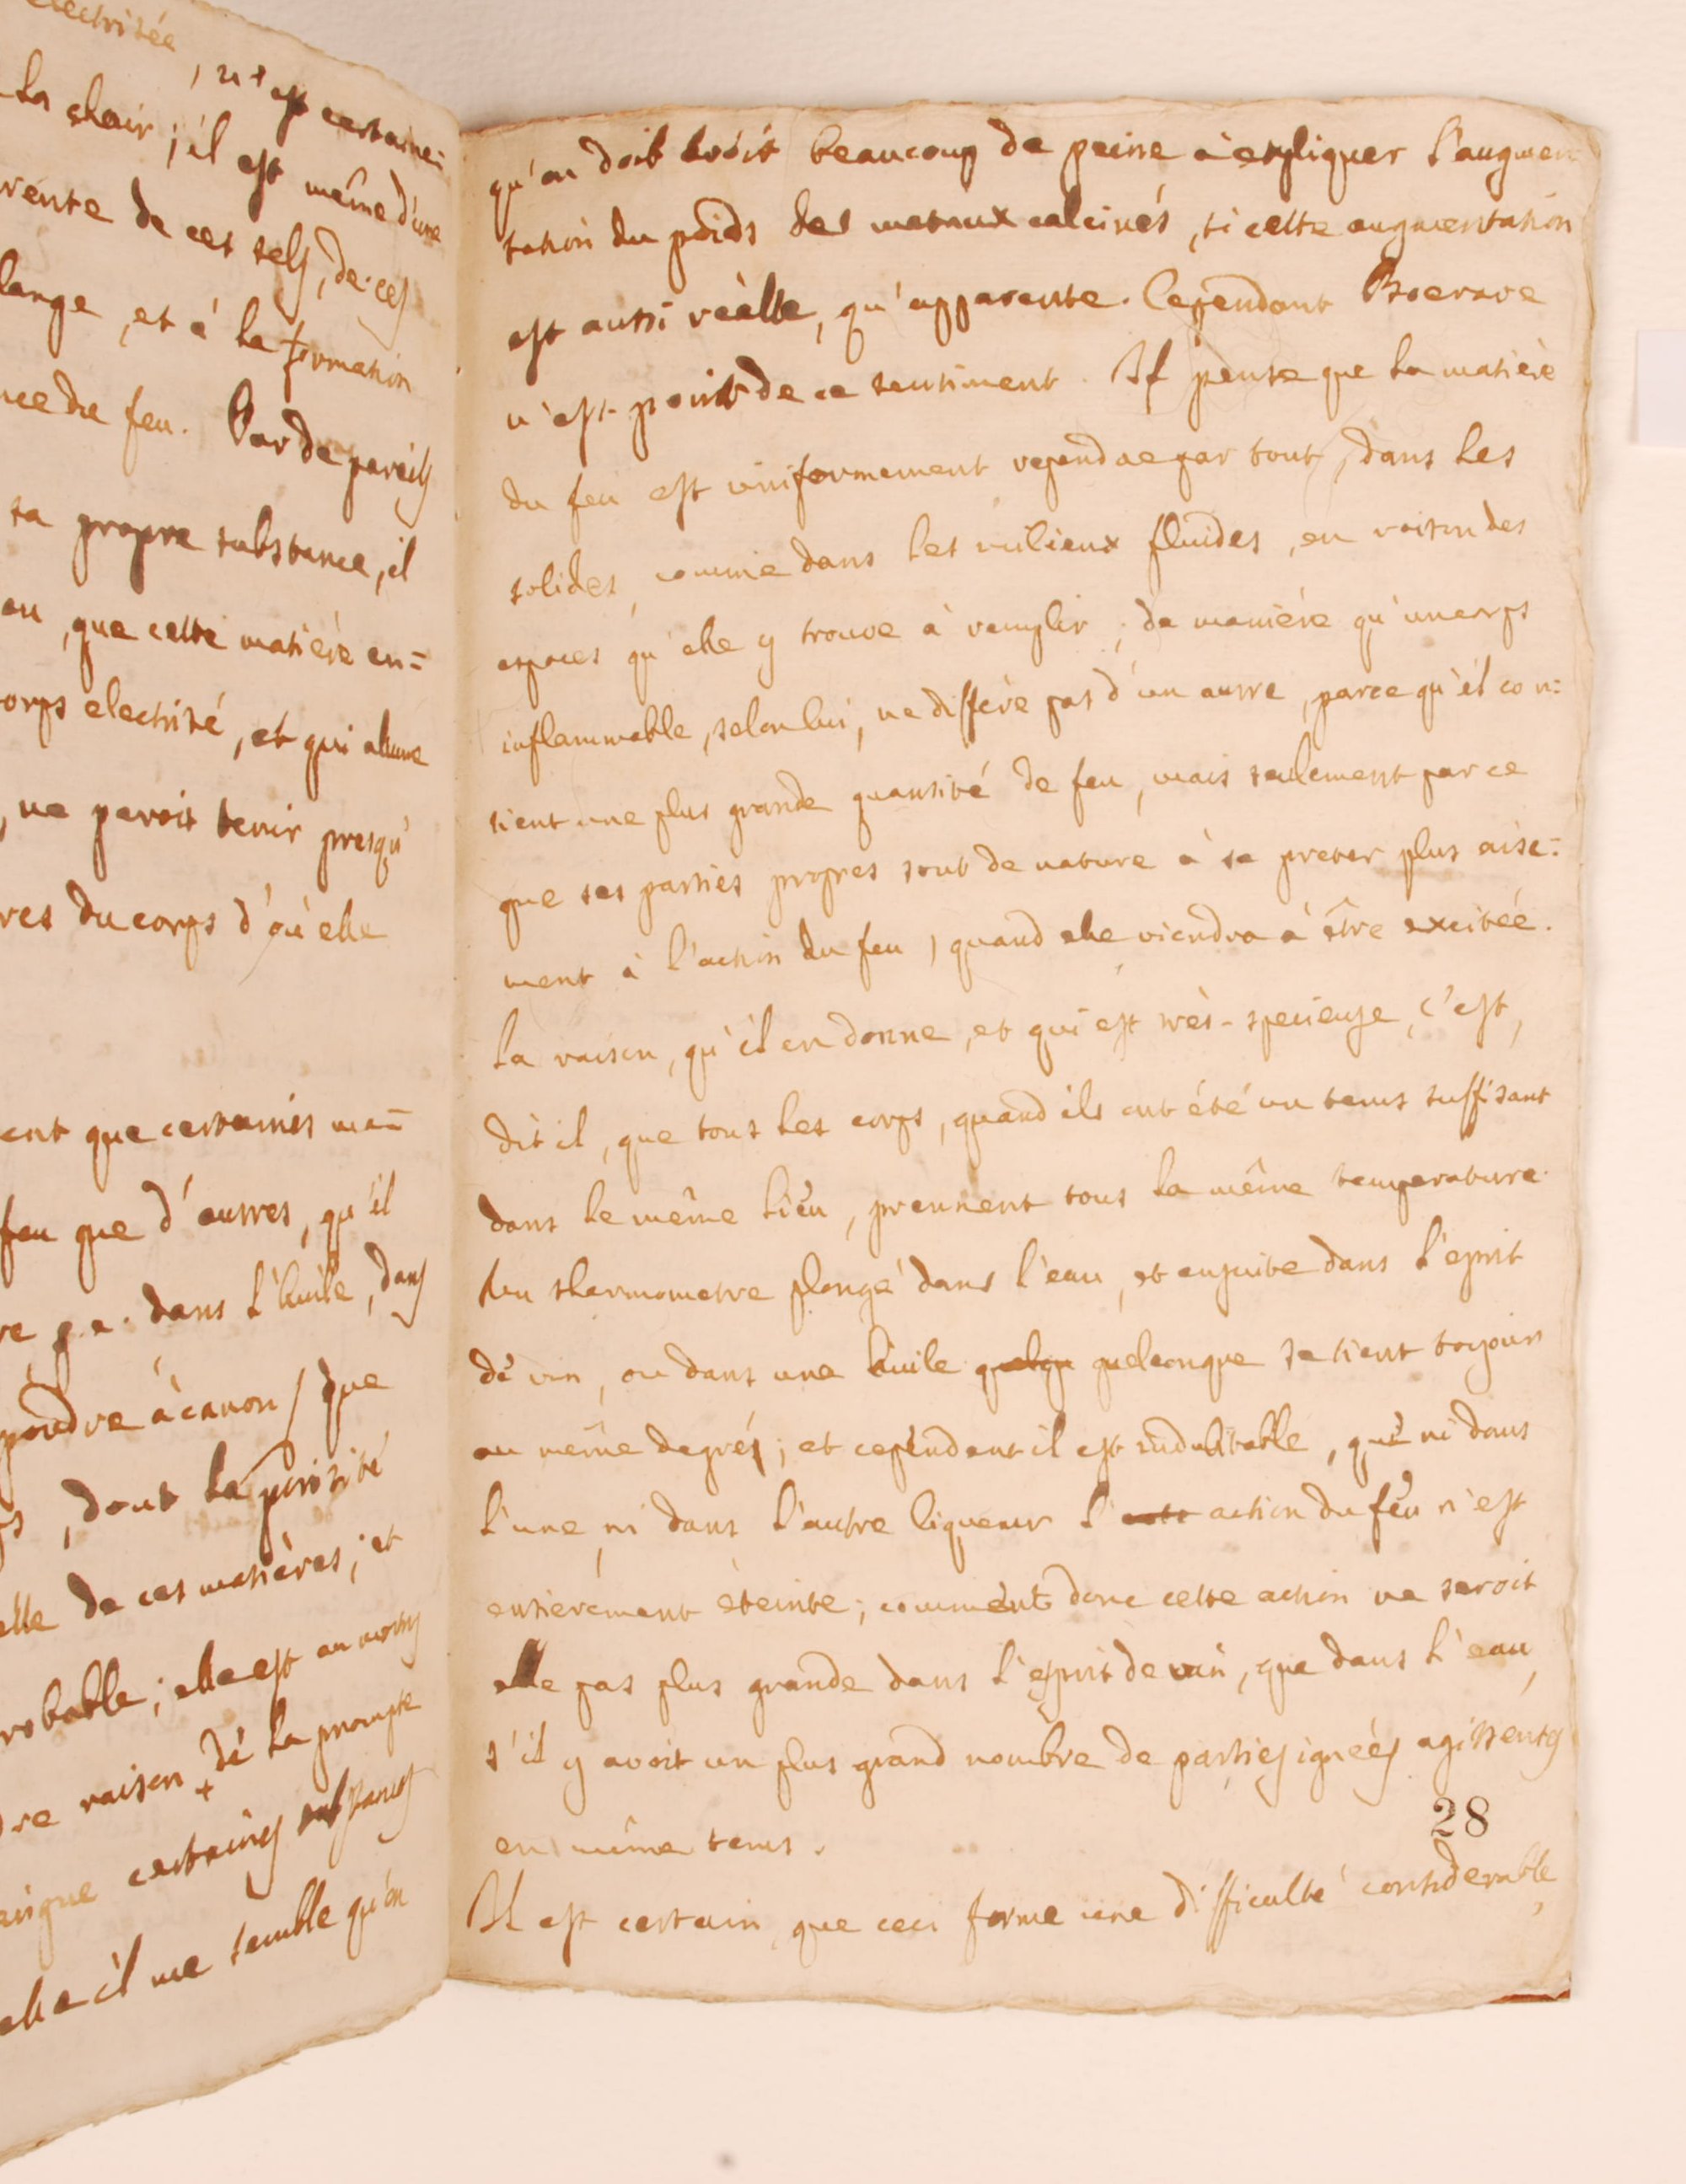 electrisée
, n'est certaine=
la chair ; il est même d'une
rente de ces sels, de ces
lange, et à la formation
nce du feu. Par de pareils
sa propre substance, il
ou, que cette matiére en=
orps electrisé, et qui allume
, ne paroit tenir presqu'
res du corps d'où elle
ent que certaines ma=
feu que d'autres, qu'il
re p. e. dans l'huile, dans
poudre à canon / que
, dont la porosité
elle de ces matières ; et
robable ; elle est au moins
dre raison de la prompte
+
certaines substances
elle il me semble qu'on
qu'on doit avoir beaucoup de peine à expliquer l'augmen
tation du poids des metaux calcinés, si cette augmentation
est aussi réelle, qu'apparente. Cependant Boerave
n'est point de ce sentiment. Il pense que la matière
du feu est uniformement rependue par tout, dans les
solides, comme dans les milieux fluides, en raison des
espaces qu'elle y trouve à remplir ; de maniére qu'un corps
inflammable, selon lui, ne differe pas d'un autre, parce qu'il con=
tient une plus grande quantité de feu, mais seulement parce
que ses parties propres sont de nature à se preter plus aise=
ment à l'action du feu, quand elle viendra à être excitée.
la raison, qu'il en donne, et qui est très-specieuse, c'est,
dit il, que tous les corps, quand ils ont été un tems suffisant
dans le même lieu, prennent tous la même temperature.
Un thermometre plongé dans l'eau, et ensuite dans l'esprit
de vin, ou dans une huile quelqu quelconque se tient toujours
au même degrés ; et cependant il est indubitable, que ni dans
l'une, ni dans l'autre liqueur l' action du feu n'est
entierement éteinte ; comment donc cette action ne seroit
elle pas plus grande dans l'esprit de vin, que dans l'eau,
s'il y avoit un plus grand nombre de parties ignées agissentes
en même tems.
28
Il est certain, que ceci forme une difficulté considerable,